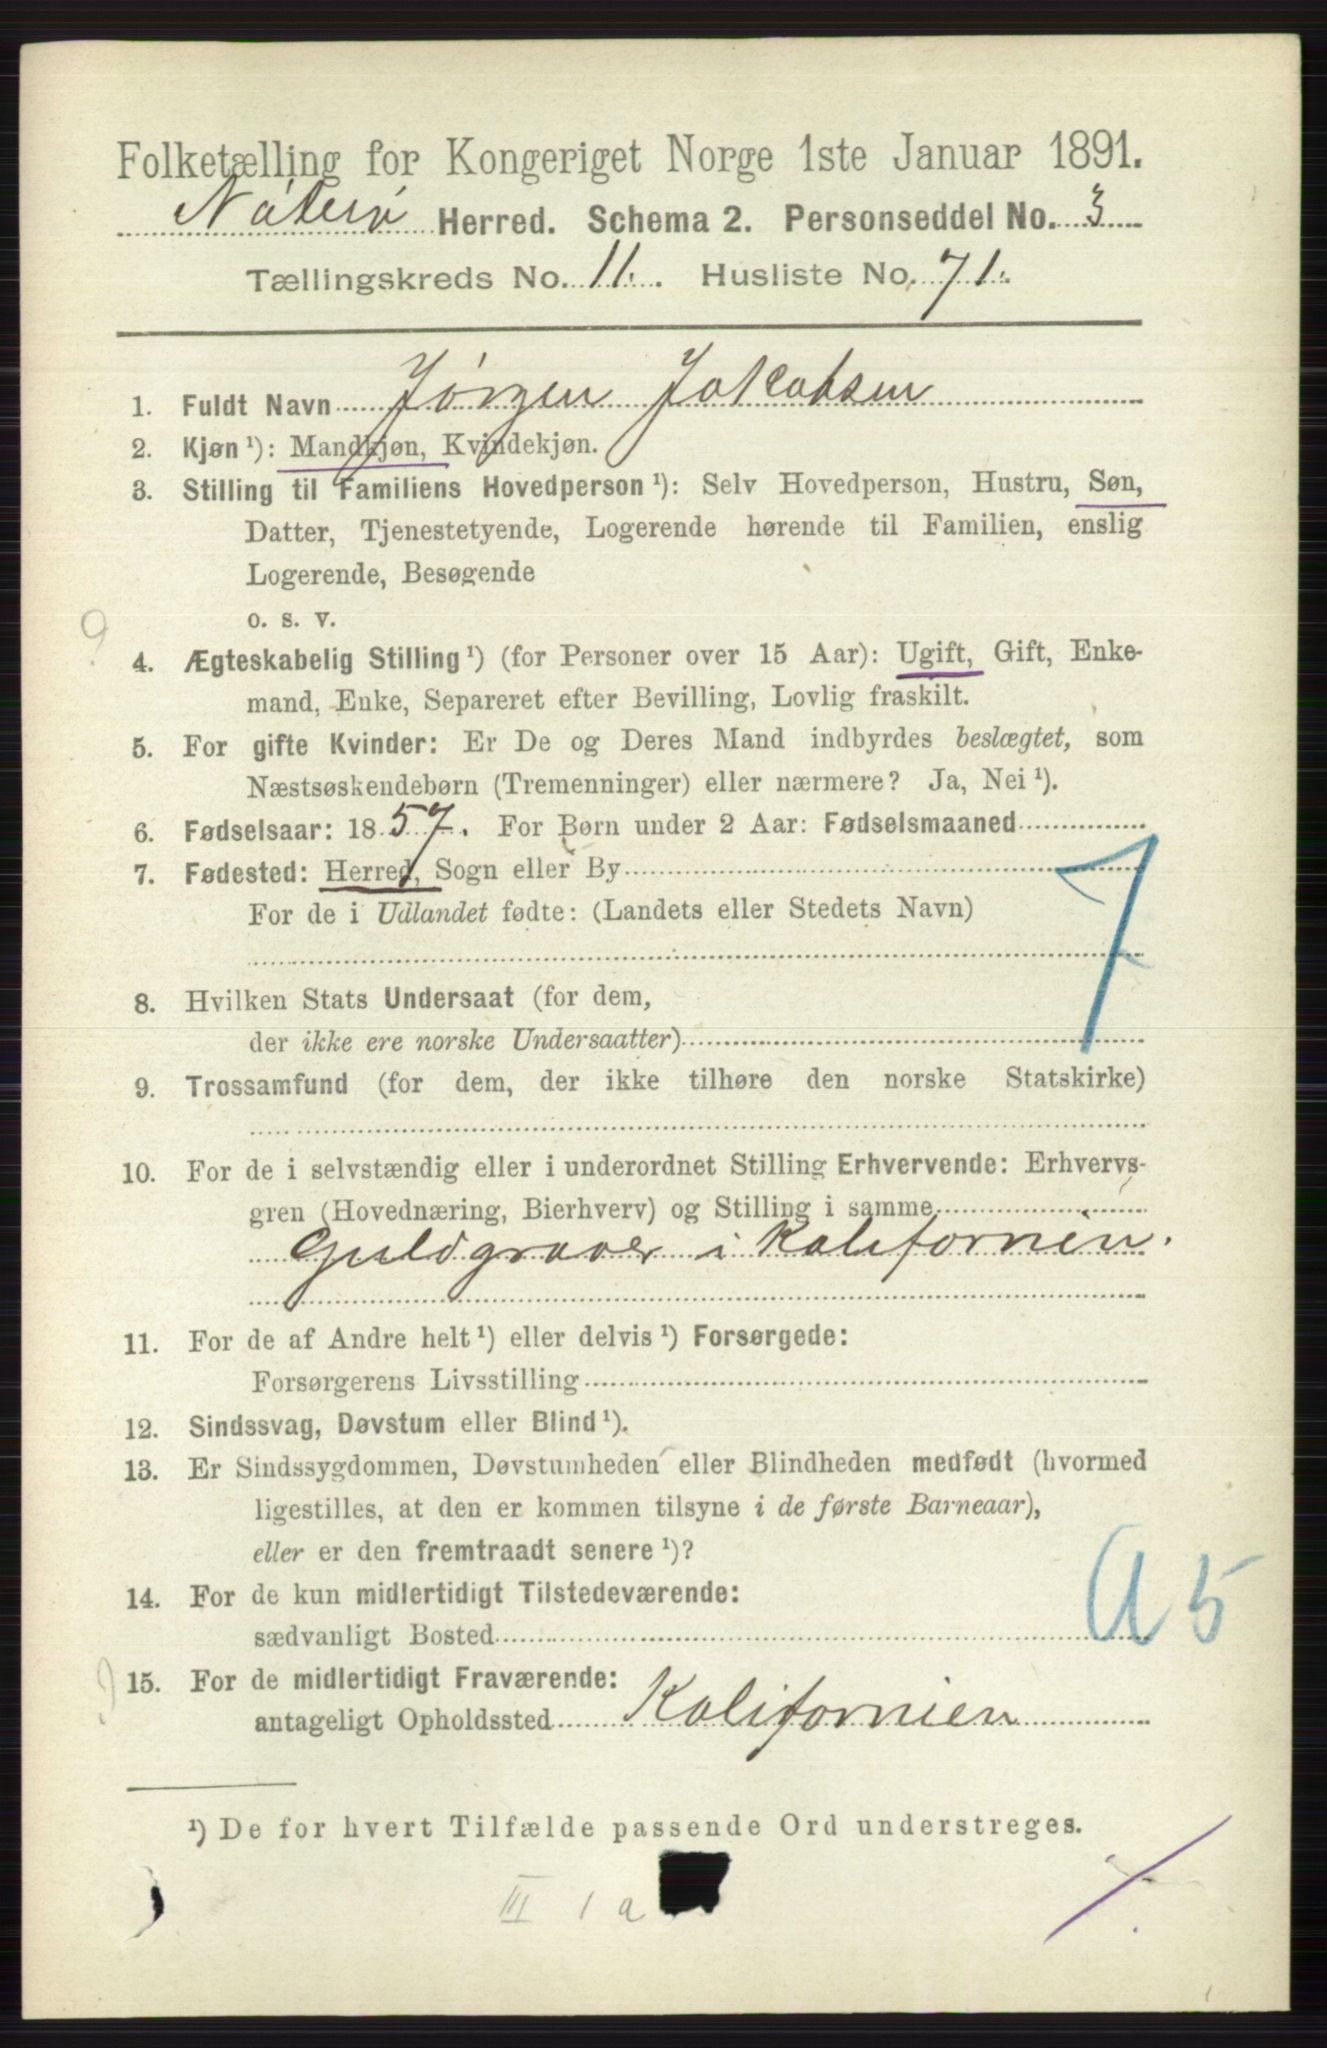 Folketælling for Kongeriget Norge 1ste Januar 1891.
Nøterø Herred. Schema 2. Personseddel No. 3
Tællingskreds No. 11. Husliste No. 71.
1. Fuldt Navn Jørgen Jakobsen
2. Kjøn ¹): Mandkjøn, Kvindekjøn.
3. Stilling til Familiens Hovedperson ¹): Selv Hovedperson, Hustru, Søn,
Datter, Tjenestetyende, Logerende hørende til Familien, enslig
Logerende, Besøgende
o. s. v.
9
4. Ægteskabelig Stilling ¹) (for Personer over 15 Aar): Ugift, Gift, Enke-
mand, Enke, Separeret efter Bevilling, Lovlig fraskilt.
5. For gifte Kvinder: Er De og Deres Mand indbyrdes beslægtet, som
Næstsøskendebørn (Tremenninger) eller nærmere? Ja, Nei ¹).
6. Fødselsaar: 1857. For Børn under 2 Aar: Fødselsmaaned
7. Fødested: Herred, Sogn eller By
For de i Udlandet fødte: (Landets eller Stedets Navn)
7
8. Hvilken Stats Undersaat (for dem,
der ikke ere norske Undersaatter)
9. Trossamfund (for dem, der ikke tilhøre den norske Statskirke)
10. For de i selvstændig eller i underordnet Stilling Erhvervende: Erhvervs-
gren (Hovednæring, Bierhverv) og Stilling i samme
Guldgraver i Kalifornien.
11. For de af Andre helt ¹) eller delvis ¹) Forsørgede:
Forsørgerens Livsstilling
12. Sindssvag, Døvstum eller Blind ¹).
13. Er Sindssygdommen, Døvstumheden eller Blindheden medfødt (hvormed
ligestilles, at den er kommen tilsyne i de første Barneaar),
eller er den fremtraadt senere ¹)?
14. For de kun midlertidigt Tilstedeværende:
sædvanligt Bosted
A 5
15. For de midlertidigt Fraværende:
antageligt Opholdssted Kalifornien
¹) De for hvert Tilfælde passende Ord understreges.
III 1 a